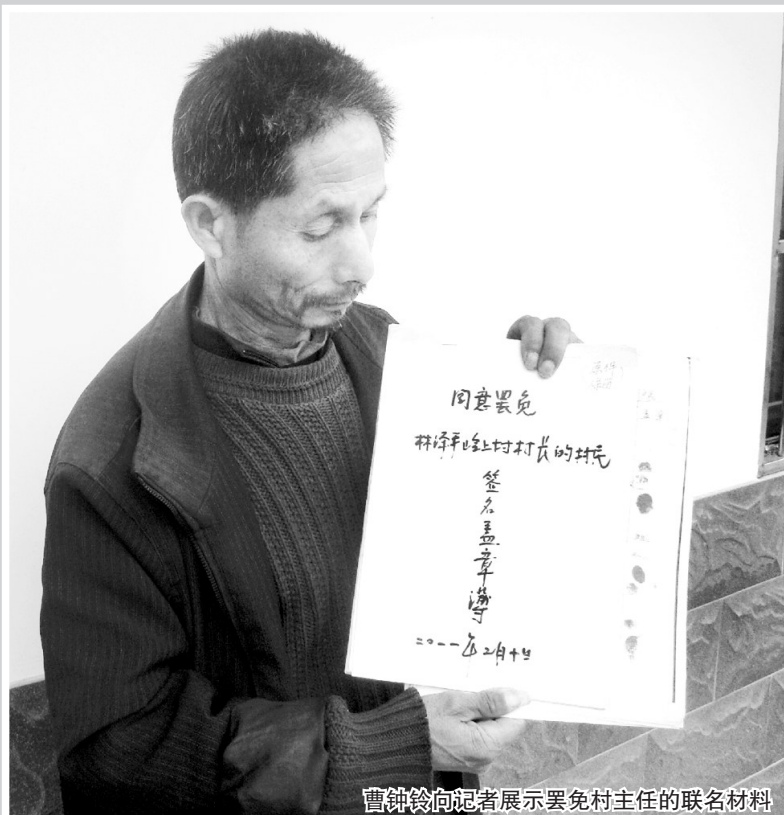 同意罢免
林泽平峰上村村长的村民
签名盖章簿
二〇一一年2月十日
曹钟铃向记者展示罢免村主任的联名材料